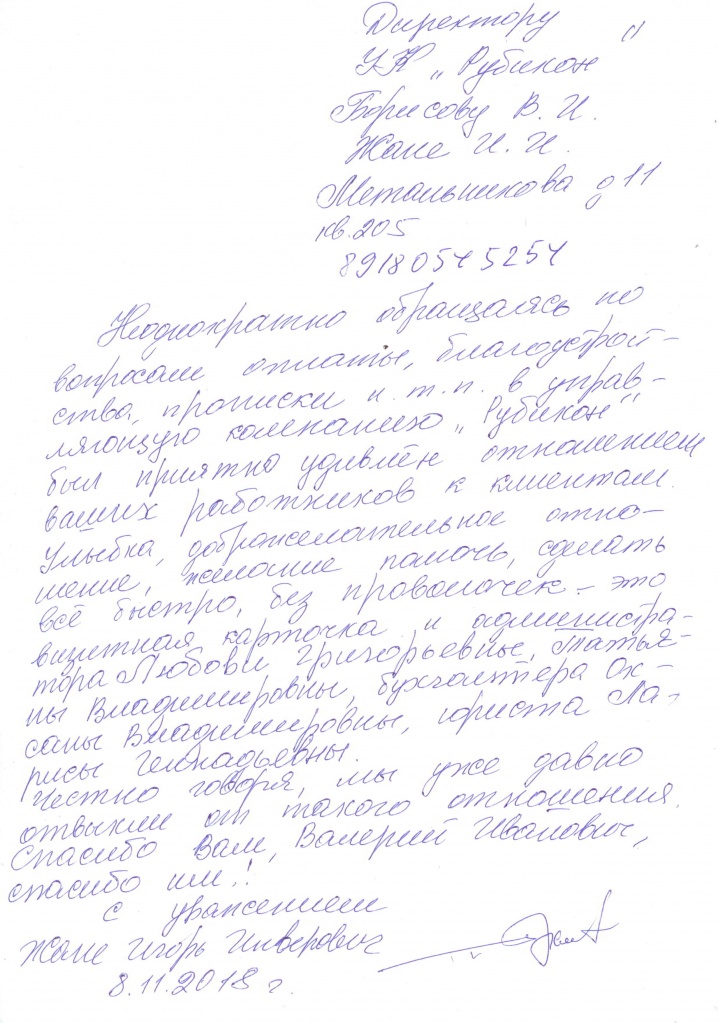 Директору
УК „Рубикон"
Борисову В. И.
Жане И. И.
Метальникова д 11
кв. 205
89180545254
Неоднократно обращаясь по
вопросам оплаты, благоустрой-
ства, прописки и т.п. в управ-
ляющую компанию „Рубикон"
был приятно удивлён отношением
ваших работников к клиентам.
Улыбка, доброжелательное отно-
шение, желание помочь, сделать
всё быстро, без проволочек – это
визитная карточка и администра-
тора Любови Григорьевны, Татья-
ны Владимировны, бухгалтера Ок-
саны Владимировны, юриста Ла-
рисы Геннадьевны.
Честно говоря, мы уже давно
отвыкли от такого отношения.
Спасибо Вам, Валерий Иванович,
спасибо им!
С уважением
Жане Игорь
8.11.2018 г.